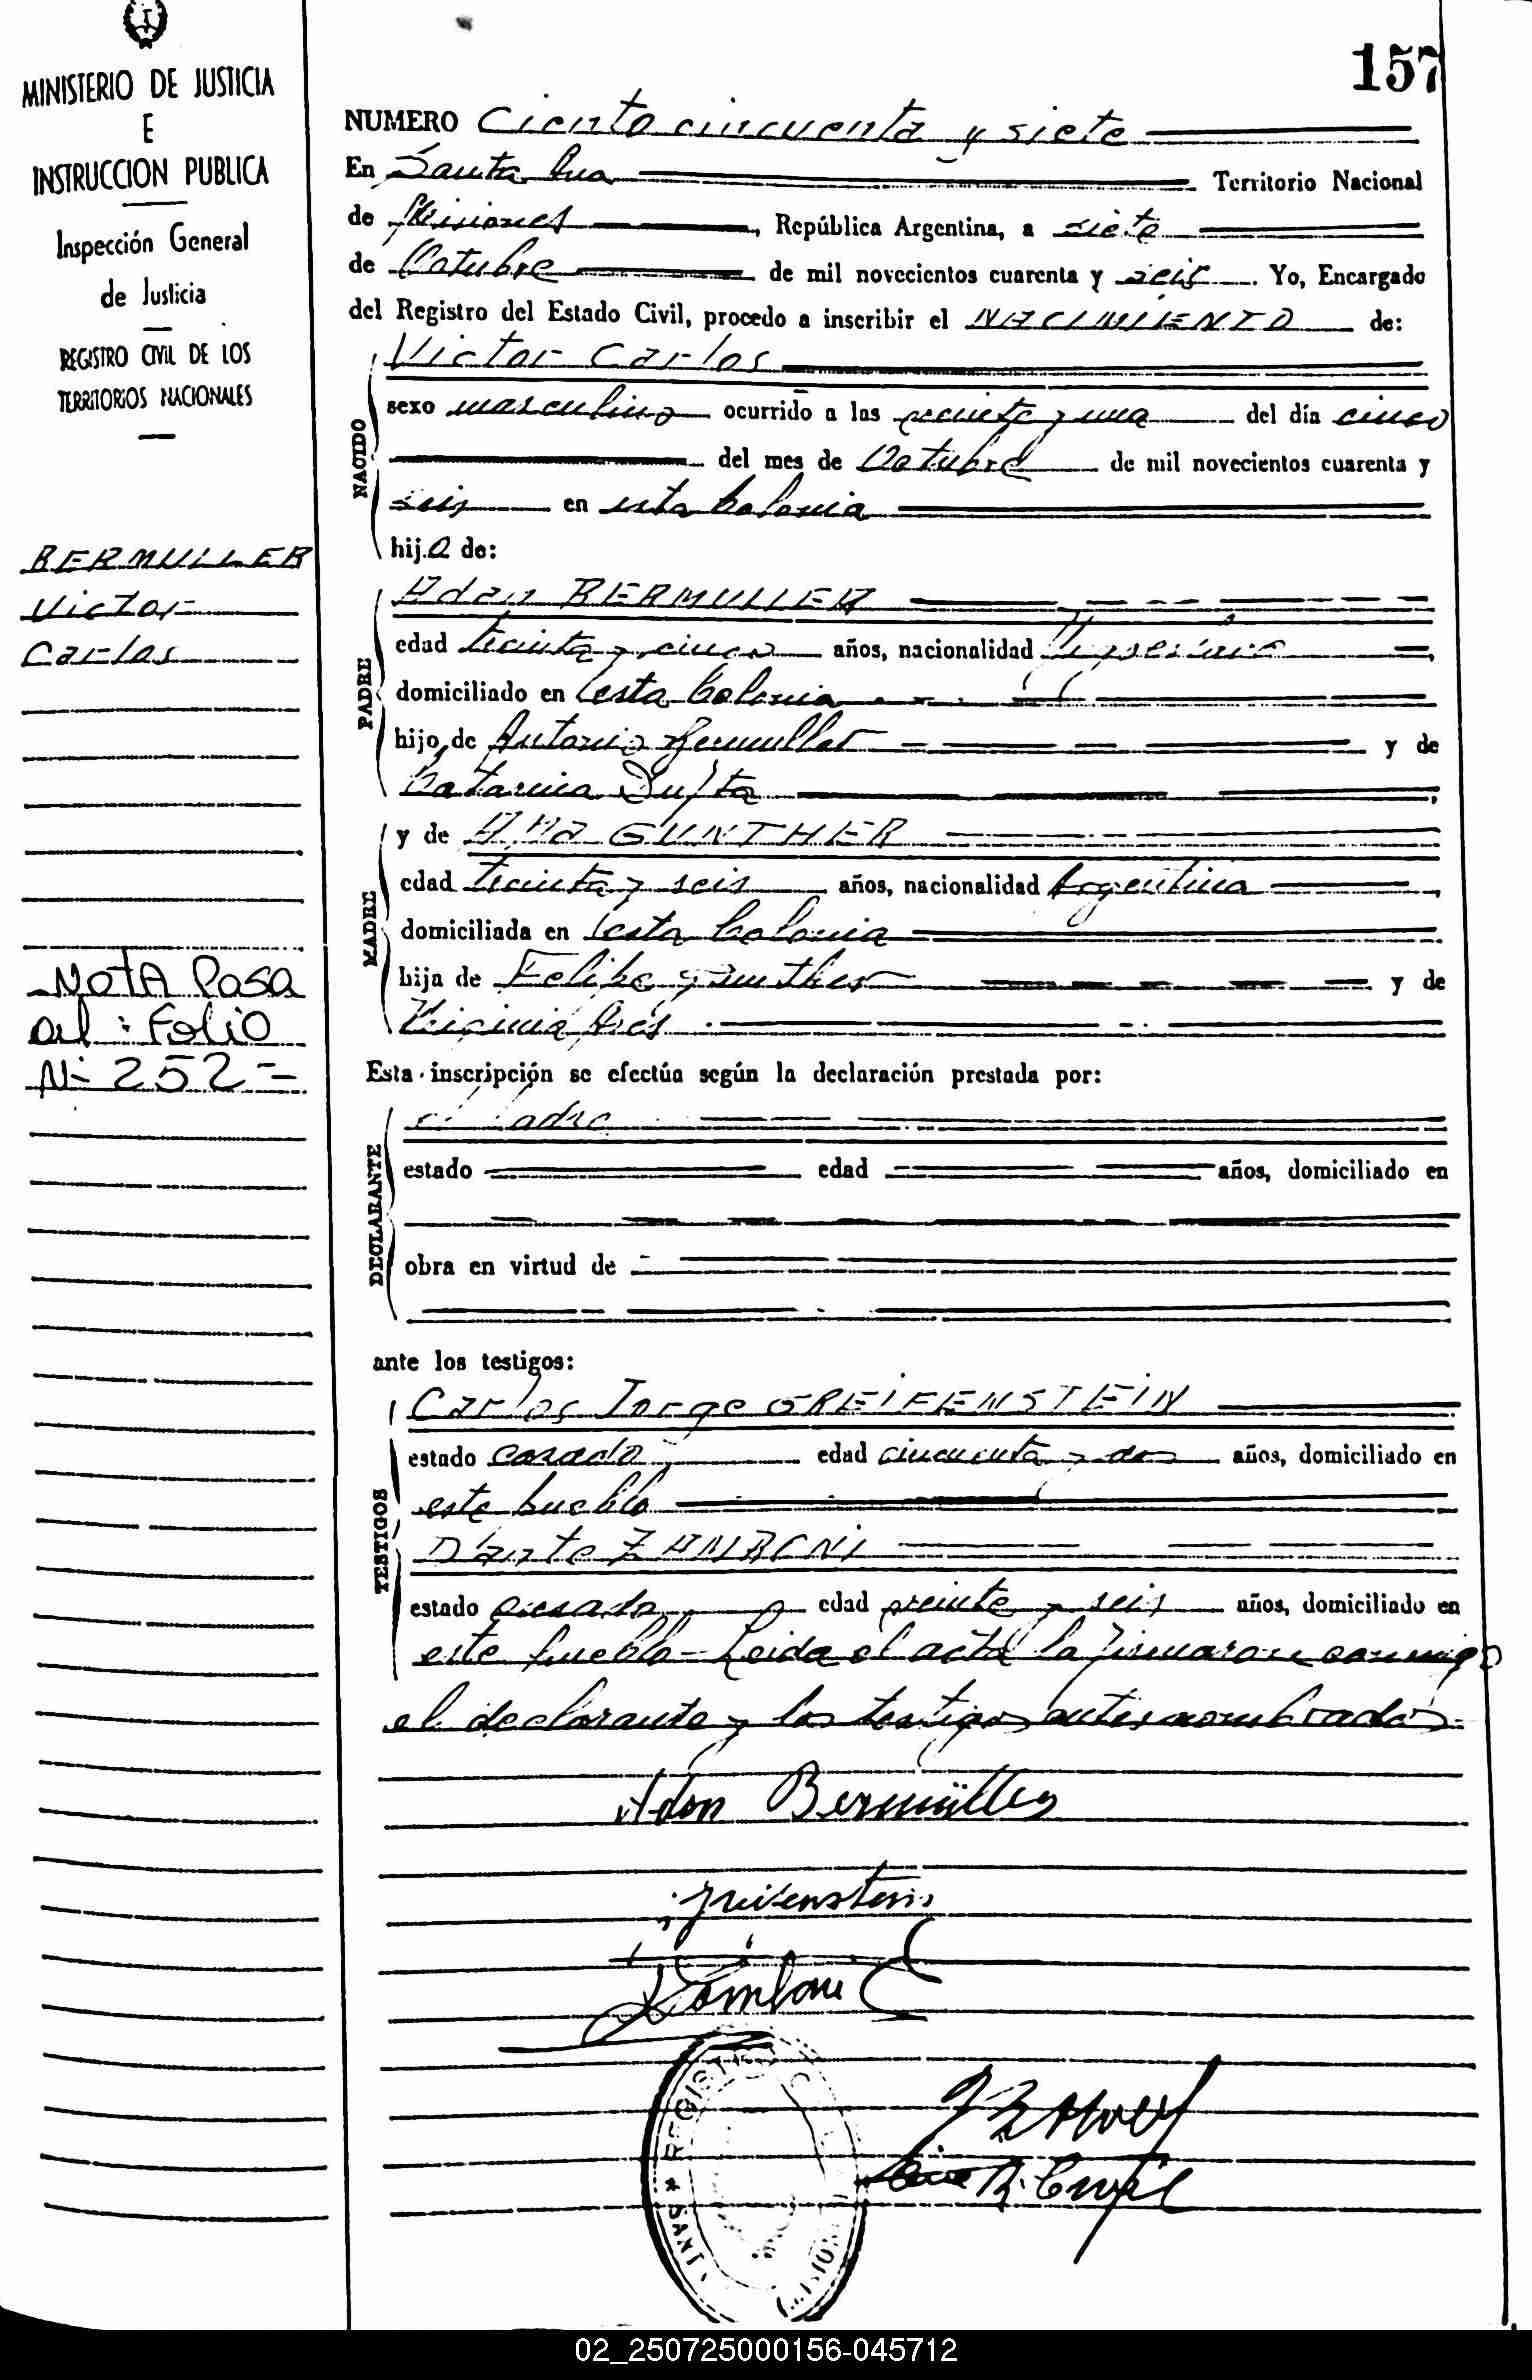 MINISTERIO DE JUSTICIA
E
INSTRUCCION PUBLICA
Inspección General
de Justicia
REGISTRO CIVIL DE LOS
TERRITORIOS NACIONALES
BERMULLER
Victor
Carlos
NOTA Pasa
al: Folio
Nº 252=
157
NUMERO Ciento cincuenta y siete
En Santa Ana Territorio Nacional
de Misiones, República Argentina, a siete
de Octubre de mil novecientos cuarenta y seis. Yo, Encargado
del Registro del Estado Civil, procedo a inscribir el NACIMIENTO de:
NACIDO
Victor Carlos
sexo masculino ocurrido a las veinte y una del día cinco
del mes de Octubre de mil novecientos cuarenta y
seis en esta Colonia
hij.o de:
PADRE
Adan BERMULLER
edad treinta y cinco años, nacionalidad
domiciliado en esta Colonia
hijo de Antonio Bermuller y de
Catarina
MADRE
y de Ana GUNTHER
edad treinta y seis años, nacionalidad Argentina
domiciliada en esta Colonia
hija de Felipe Gunther y de
Virginia
Esta inscripción se efectúa según la declaración prestada por:
DECLARANTE
el Padre
estado edad años, domiciliado en
obra en virtud de
ante los testigos:
TESTIGOS
Carlos Jorge GREIFENSTEIN
estado casado edad cincuenta y dos años, domiciliado en
este pueblo
Dante ZAMBONI
estado casado edad veinte y seis años, domiciliado en
este pueblo - Leida el acta la firmaron conmigo
el declarante y los testigos antes nombrados=
Adan Bermüller
Greifenstein
Zamboni
REGISTRO
* SANT
02_250725000156-045712